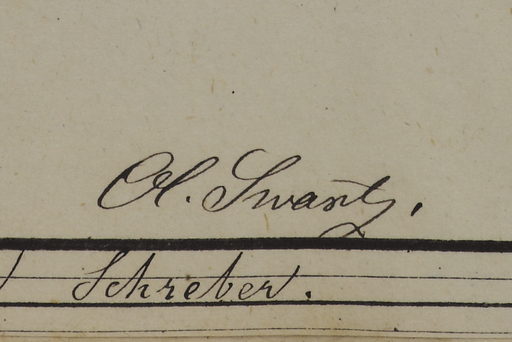 Ol. Swartz.
Schreber.